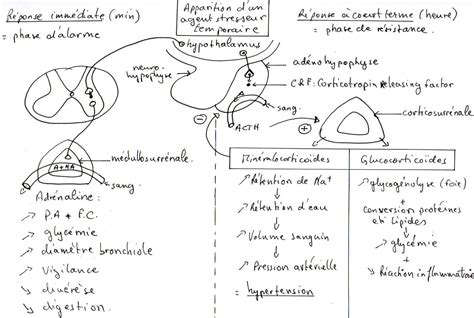 Réponse immédiate (min)
= phase d'alarme
Apparition d'un
agent stresseur
temporaire
Réponse à court terme (heure)
= phase de résistance.
hypothalamus
neuro-
hypophyse
adénohypophyse
CRF: Corticotropin Releasing factor
sang
ACTH
corticosurrénale
médullosurrénale
A + NA
sang
Adrénaline:
↗ P.A + F.C.
↗ glycémie
↗ diamètre bronchiole
↗ Vigilance
↘ diurèse
↘ digestion.
Minéralocorticoïdes
↗ Rétention de Na+
↓
↗ Rétention d'eau
↓
↗ Volume sanguin
↓
↗ Pression artérielle
= hypertension
Glucocorticoïdes
↗ glycogénolyse (foie)
+
Conversion protéines
et lipides
↓
↗ glycémie
+
↘ Réaction inflammatoire